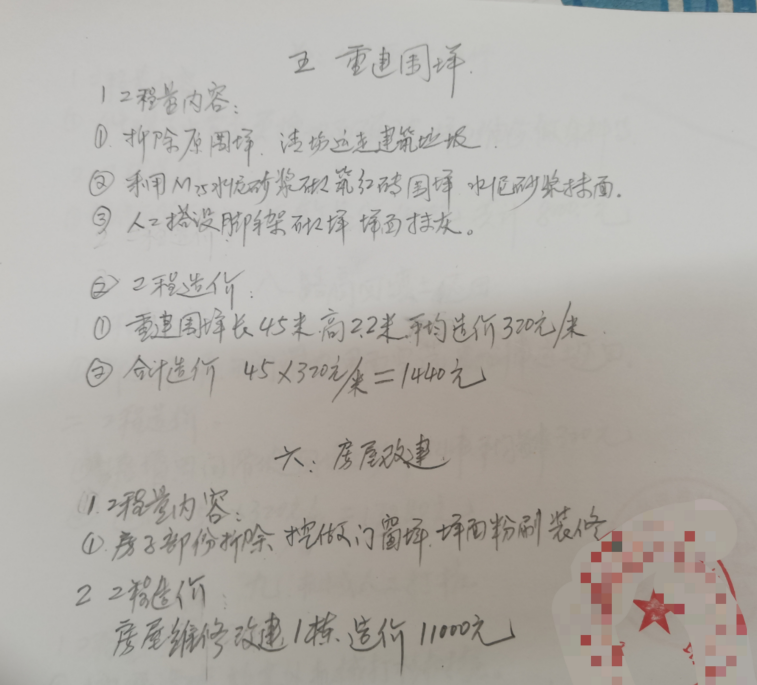 五 重建围墇
1 工程量内容:
① 拆除原围墇. 清场运走建筑垃圾.
② 利用M7.5水泥砂浆砌筑红砖围墇 水泥砂浆抹面.
③ 人工搭设脚手架砌墇 墇面抹灰。
② 工程造价:
① 重建围墇长45米.高2.2米.平均造价320元/米
② 合计造价 45×320元/米=1440元
六: 房屋改建
1. 工程量内容:
①. 房子部份拆除, 挖做门窗墇. 墇面粉刷装修
2 工程造价:
房屋维修改建1栋、造价11000元